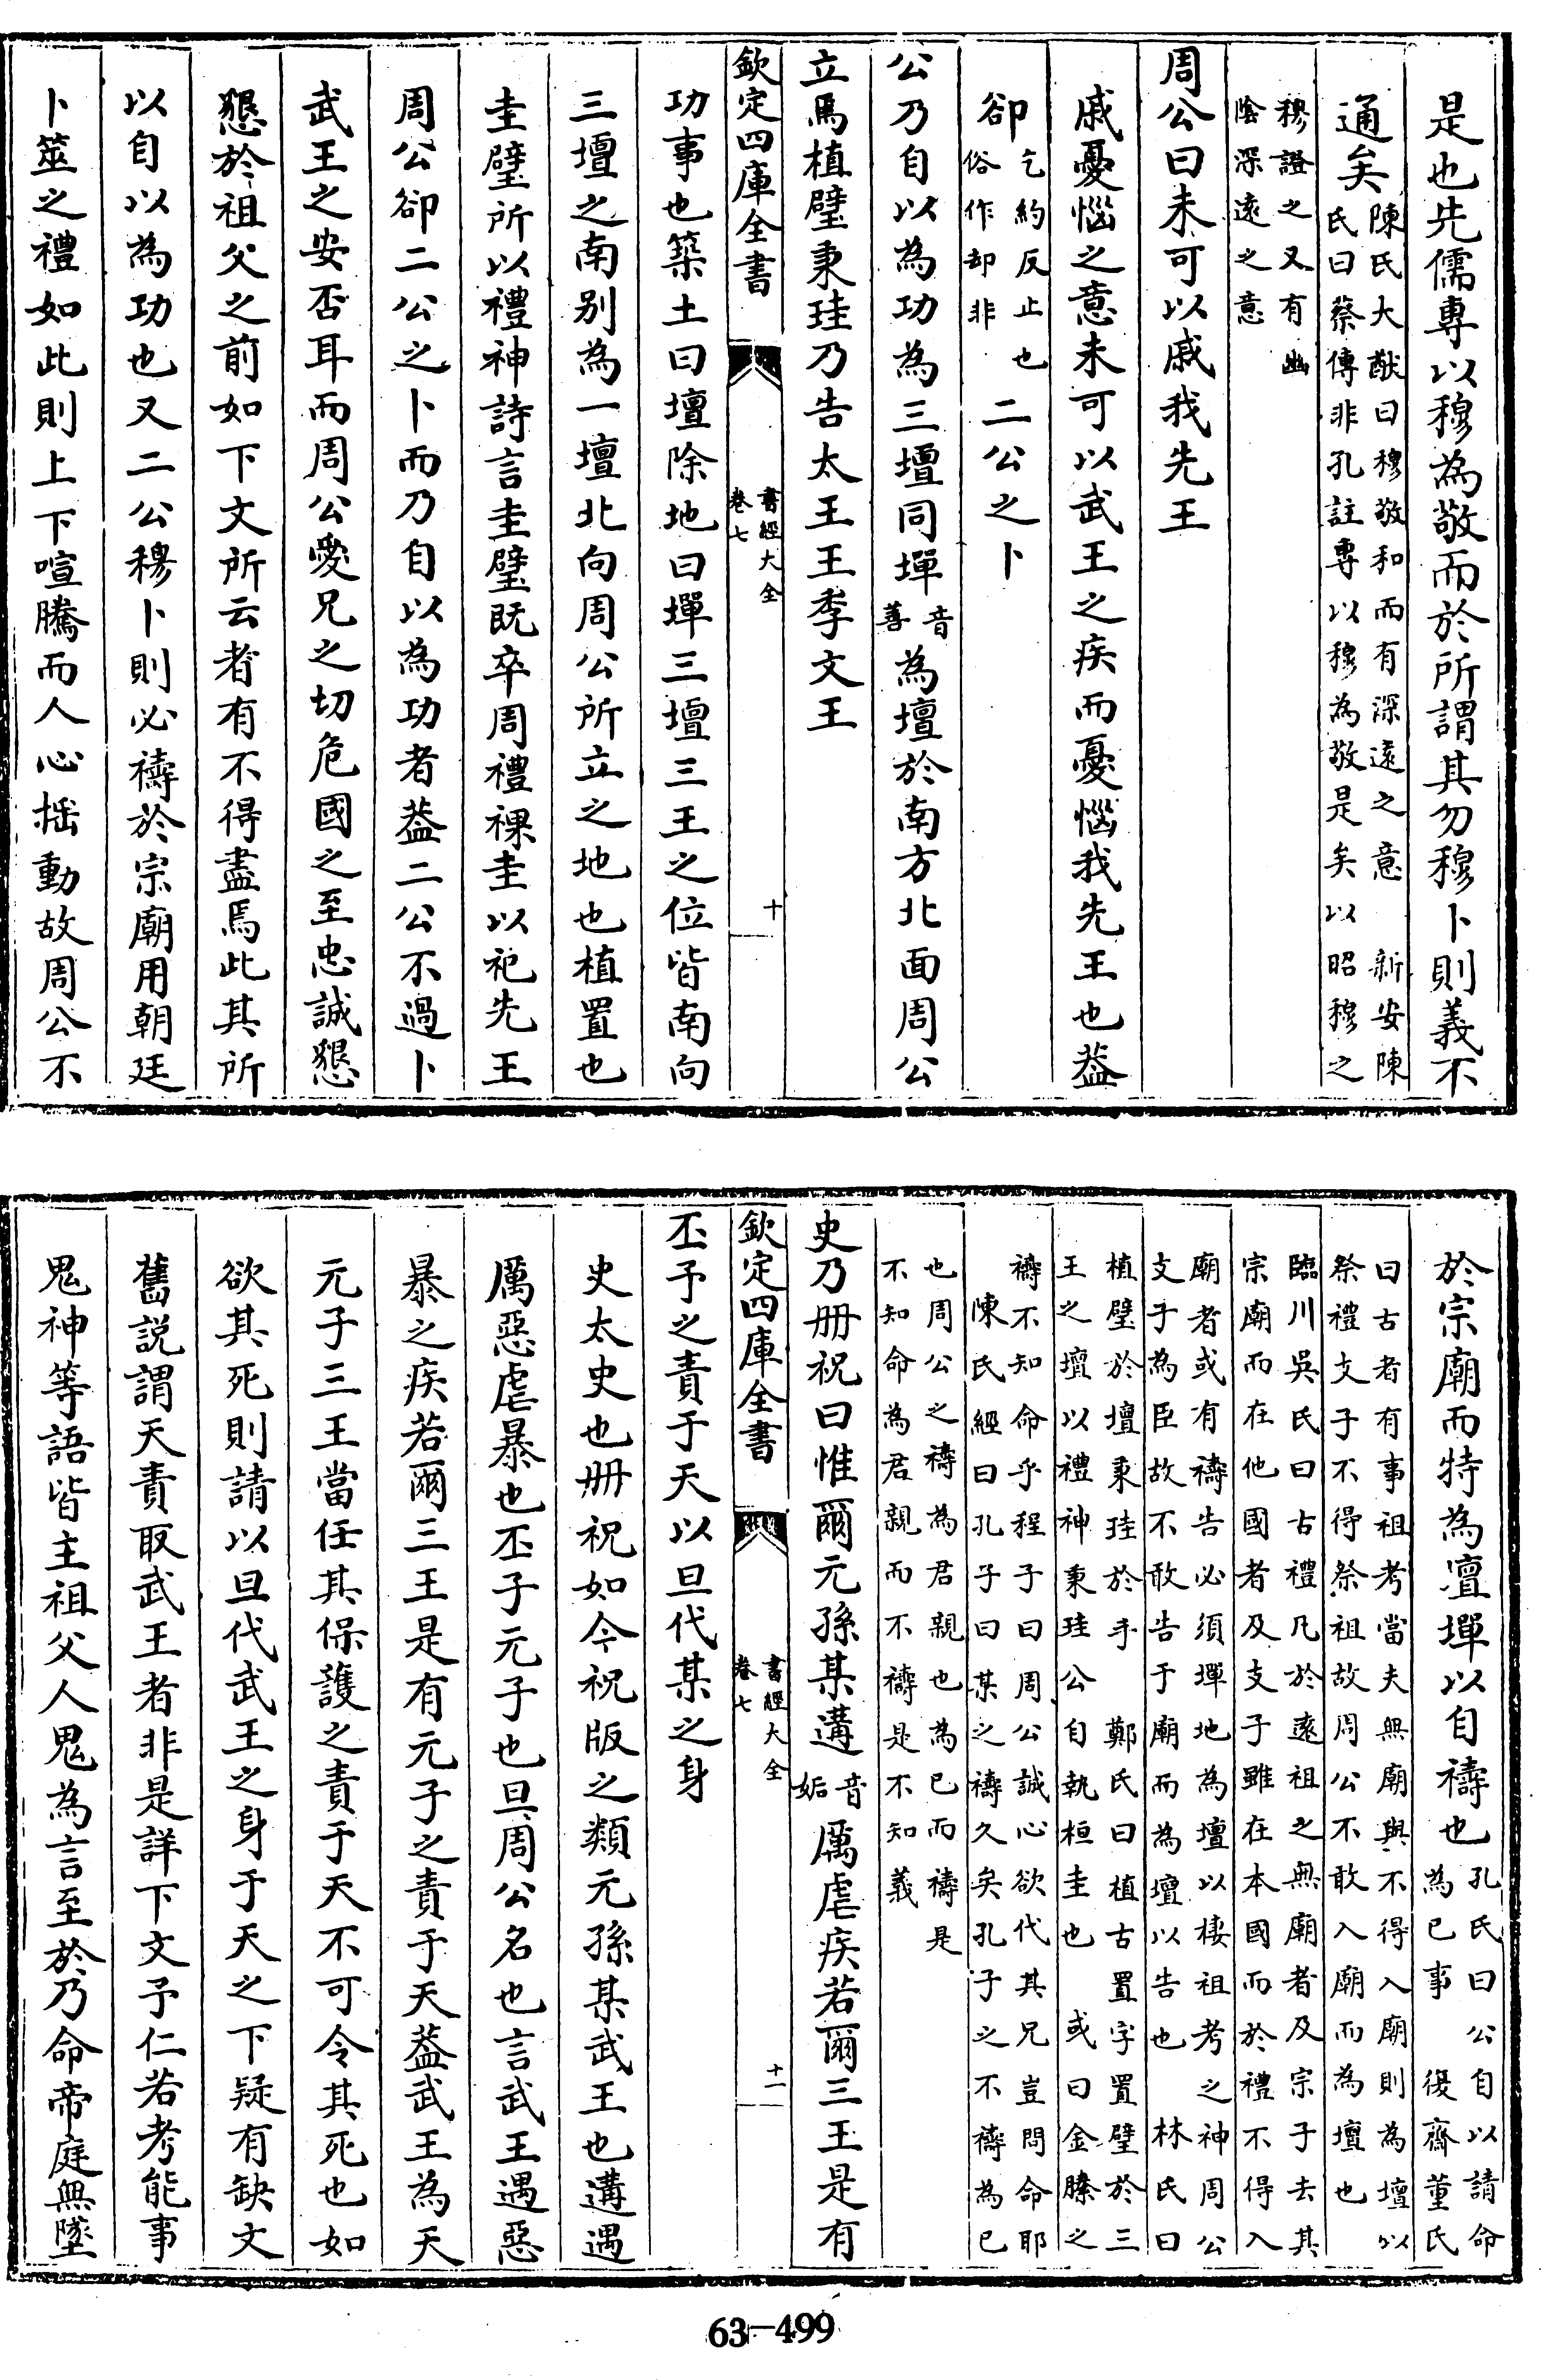 是也先儒專以穆為敬而於所謂其勿穆卜則義不
通矣陳氏大猷曰穆敬和而有深遠之意 新安陳
氏曰蔡傳非孔註專以穆為敬是矣以昭穆之
穆證之又有幽
陰深遠之意
周公曰未可以戚我先王
戚憂惱之意未可以武王之疾而憂惱我先王也葢
卻乞約反止也
俗作却非
二公之卜
公乃自以為功為三壇同墠音
善
為壇於南方北面周公
立焉植璧秉珪乃告太王王季文王
欽定四庫全書
書經大全
卷七
十
功事也築土曰壇除地曰墠三壇三王之位皆南向
三壇之南别為一壇北向周公所立之地也植置也
圭璧所以禮神詩言圭璧既卒周禮祼圭以祀先王
周公卻二公之卜而乃自以為功者葢二公不過卜
武王之安否耳而周公愛兄之切危國之至忠誠懇
懇於祖父之前如下文所云者有不得盡焉此其所
以自以為功也又二公穆卜則必禱於宗廟用朝廷
卜筮之禮如此則上下喧騰而人心揺動故周公不
於宗廟而特為壇墠以自禱也孔氏曰公自以請命
為已事 復齋董氏
曰古者有事祖考當夫無廟與不得入廟則為壇以
祭禮支子不得祭祖故周公不敢入廟而為壇也
臨川吳氏曰古禮凡於遠祖之無廟者及宗子去其
宗廟而在他國者及支子雖在本國而於禮不得入
廟者或有禱告必須墠地為壇以棲祖考之神周公
支子為臣故不敢告于廟而為壇以告也 林氏曰
植璧於壇秉珪於手 鄭氏曰植古置字置璧於三
王之壇以禮神秉珪公自執桓圭也 或曰金縢之
禱不知命乎程子曰周公誠心欲代其兄豈問命耶
陳氏經曰孔子曰某之禱久矣孔子之不禱為已
也周公之禱為君親也為已而禱是
不知命為君親而不禱是不知義
史乃册祝曰惟爾元孫某遘音
姤
厲虐疾若爾三王是有
欽定四庫全書
書經大全
卷七
十一
丕子之責于天以旦代某之身
史太史也册祝如今祝版之類元孫某武王也遘遇
厲惡虐暴也丕子元子也旦周公名也言武王遇惡
暴之疾若爾三王是有元子之責于天葢武王為天
元子三王當任其保護之責于天不可令其死也如
欲其死則請以旦代武王之身于天之下疑有缺文
舊説謂天責取武王者非是詳下文予仁若考能事
鬼神等語皆主祖父人鬼為言至於乃命帝庭無墜
63-499